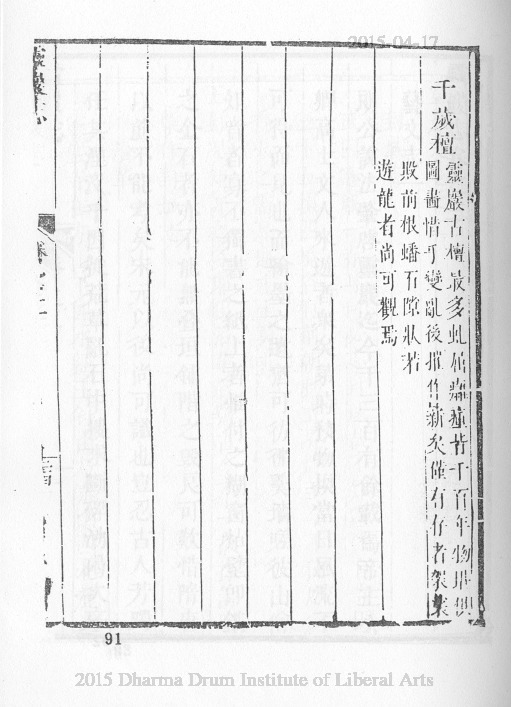 2015-04-17
千歲檀
靈巖古檀最多虬 皆千百年物堪供
圖畵惜乎變亂後摧作薪矣僅有存者
殿前根蟠石隙狀若
遊龍者尚可觀焉
靈巖志
91
2015 Dharma Drum Institute of Liberal Arts